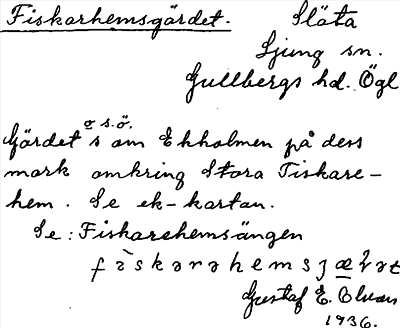 Fiskarhemsgärdet. Släta
Ljung sn.
Gullbergs hd. Ögl
o s.ö.
Gärdet s om Ekholmen på dess
mark omkring Stora Fiskare-
hem. Se ek-kartan.
Se: Fiskarehemsängen
fìskarəhemsjæ̠ɖət
Gustaf E.
1936.